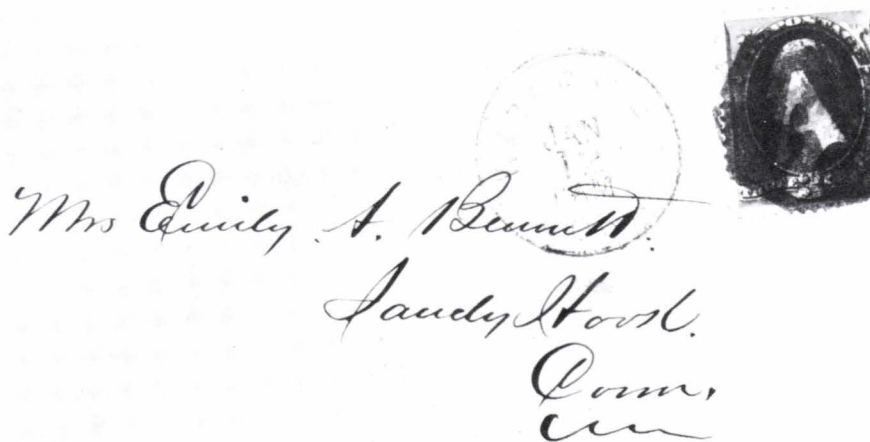 JAN
Mrs Emily A. Bennett.
Sandy Hook.
Conn.